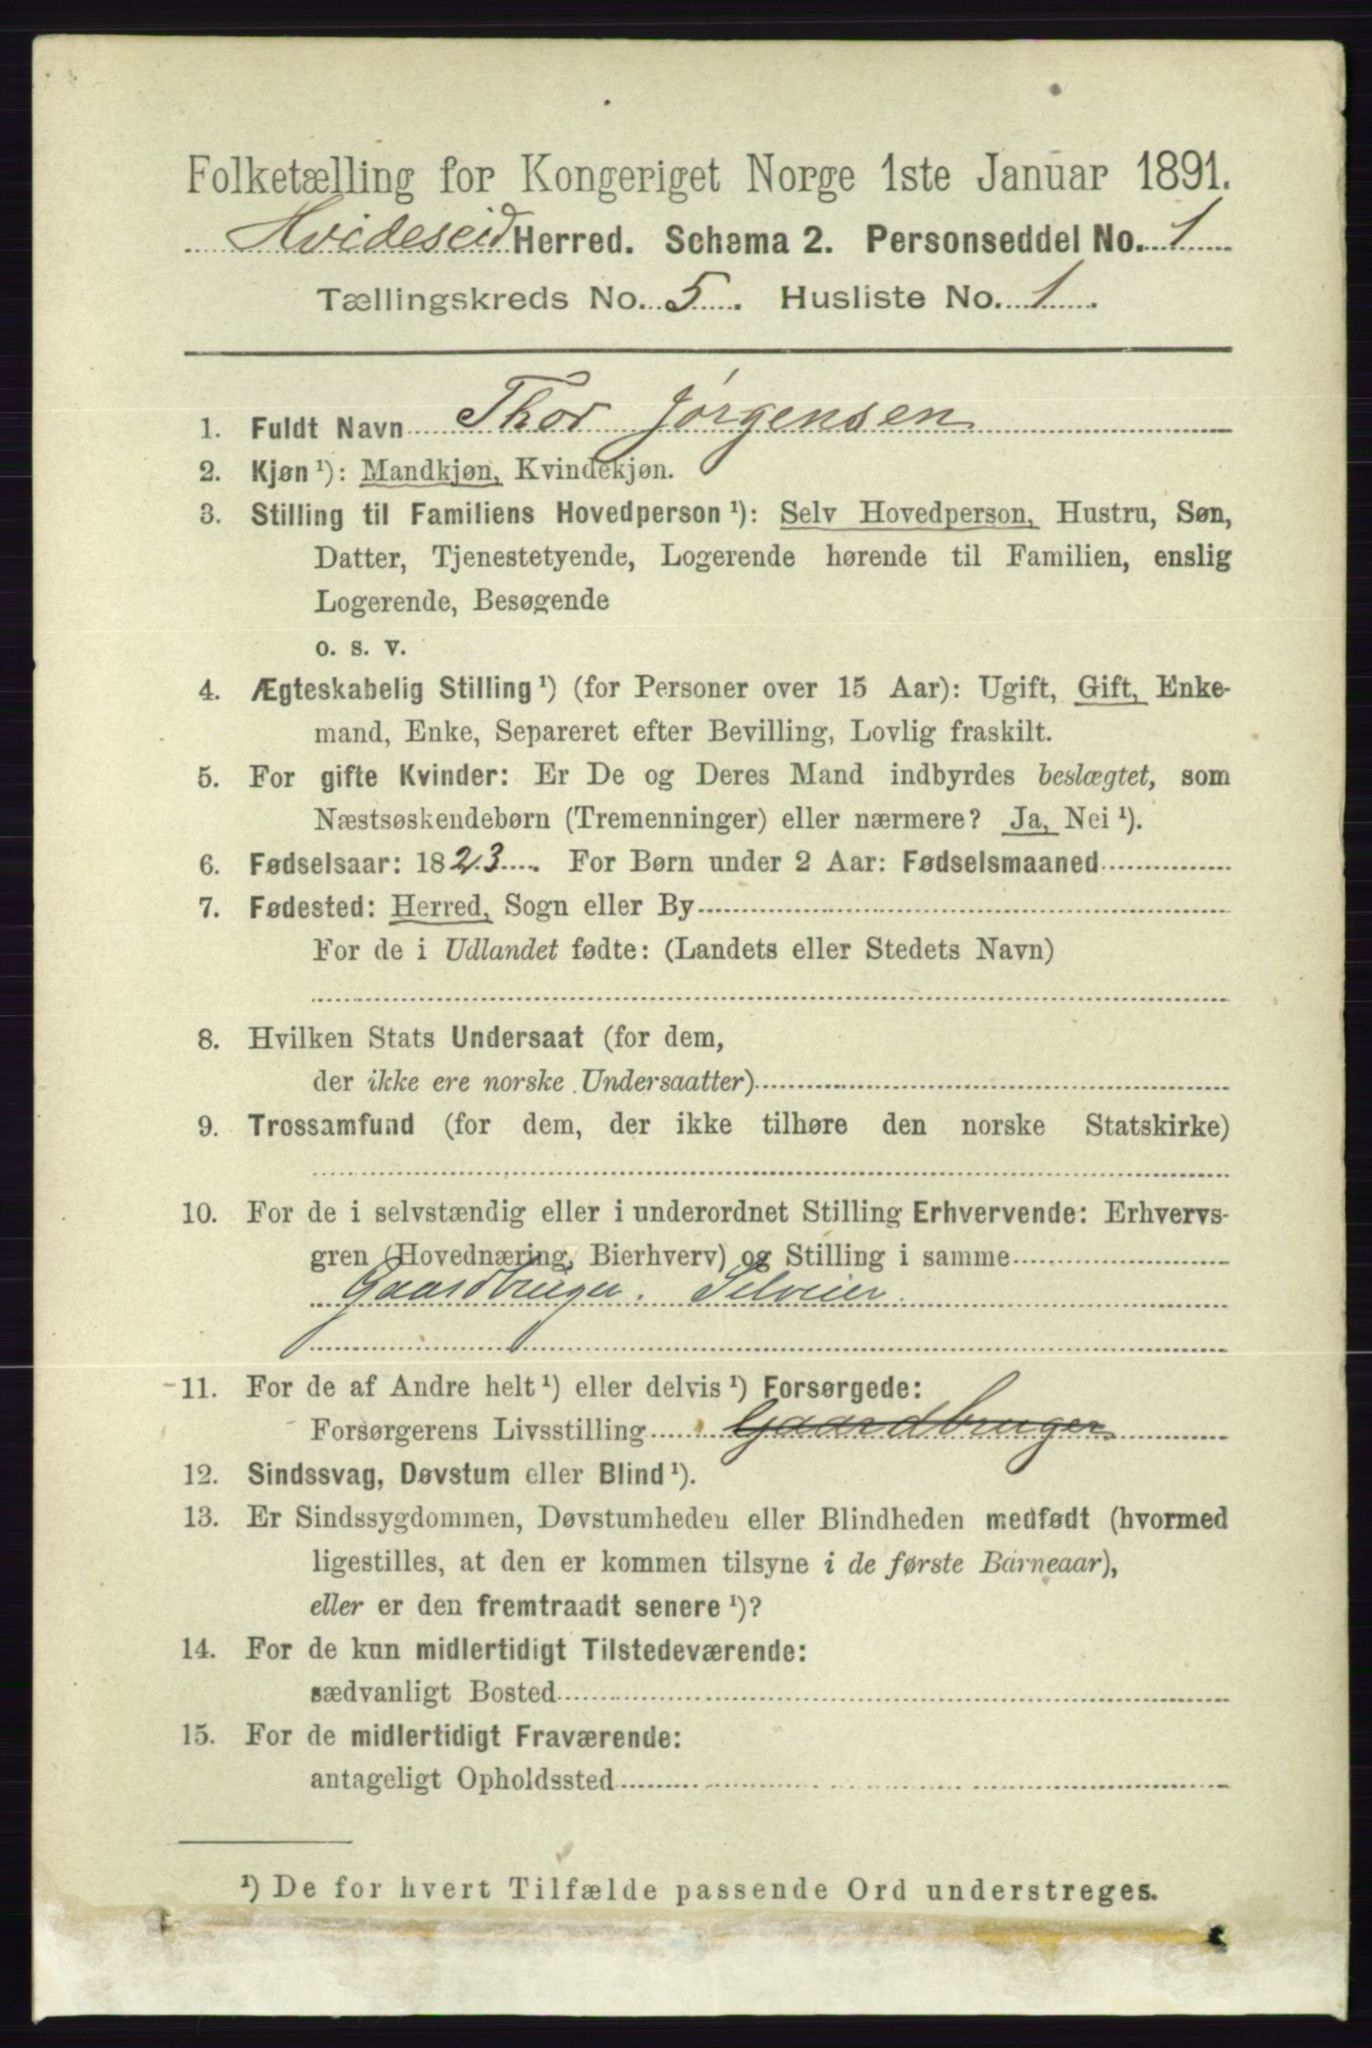 Folketælling for Kongeriget Norge 1ste Januar 1891.
Hvideseid Herred. Schema 2. Personseddel No. 1
Tællingskreds No. 5. Husliste No. 1.
1. Fuldt Navn Thor Jørgensen
2. Kjøn ¹): Mandkjøn, Kvindekjøn.
3. Stilling til Familiens Hovedperson ¹): Selv Hovedperson, Hustru, Søn,
Datter, Tjenestetyende, Logerende hørende til Familien, enslig
Logerende, Besøgende
o. s. v.
4. Ægteskabelig Stilling ¹) (for Personer over 15 Aar): Ugift, Gift, Enke-
mand, Enke, Separeret efter Bevilling, Lovlig fraskilt.
5. For gifte Kvinder: Er De og Deres Mand indbyrdes beslægtet, som
Næstsøskendebørn (Tremenninger) eller nærmere? Ja, Nei ¹).
6. Fødselsaar: 1823. For Børn under 2 Aar: Fødselsmaaned
7. Fødested: Herred, Sogn eller By
For de i Udlandet fødte: (Landets eller Stedets Navn)
8. Hvilken Stats Undersaat (for dem,
der ikke ere norske Undersaatter)
9. Trossamfund (for dem, der ikke tilhøre den norske Statskirke)
10. For de i selvstændig eller i underordnet Stilling Erhvervende: Erhvervs-
gren (Hovednæring, Bierhverv) og Stilling i samme
Gaardbruger. Selveier.
11. For de af Andre helt ¹) eller delvis ¹) Forsørgede:
Forsørgerens Livsstilling Gaardbruger
12. Sindssvag, Døvstum eller Blind ¹).
13. Er Sindssygdommen, Døvstumheden eller Blindheden medfødt (hvormed
ligestilles, at den er kommen tilsyne i de første Barneaar),
eller er den fremtraadt senere ¹)?
14. For de kun midlertidigt Tilstedeværende:
sædvanligt Bosted
15. For de midlertidigt Fraværende:
antageligt Opholdssted
¹) De for hvert Tilfælde passende Ord understreges.